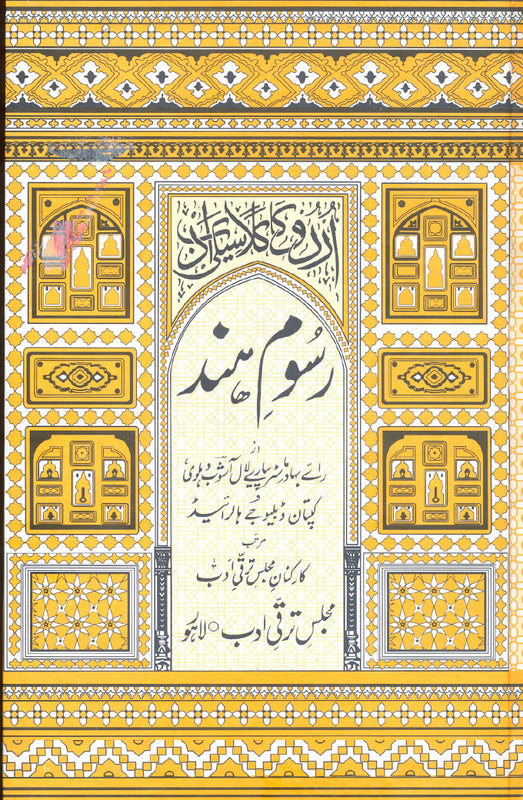 اُردو کا کلاسیکی ادب
رسُومِ ہند
از
رائے بہادر ماسٹر پیارے لال آشوب دہلوی
و
کپتان ڈبلیو جے ہالرائیڈ
مرتبہ
کارکنانِ مجلس ترقیِ ادب
مجلسِ ترقیِ ادب ○ لاہور